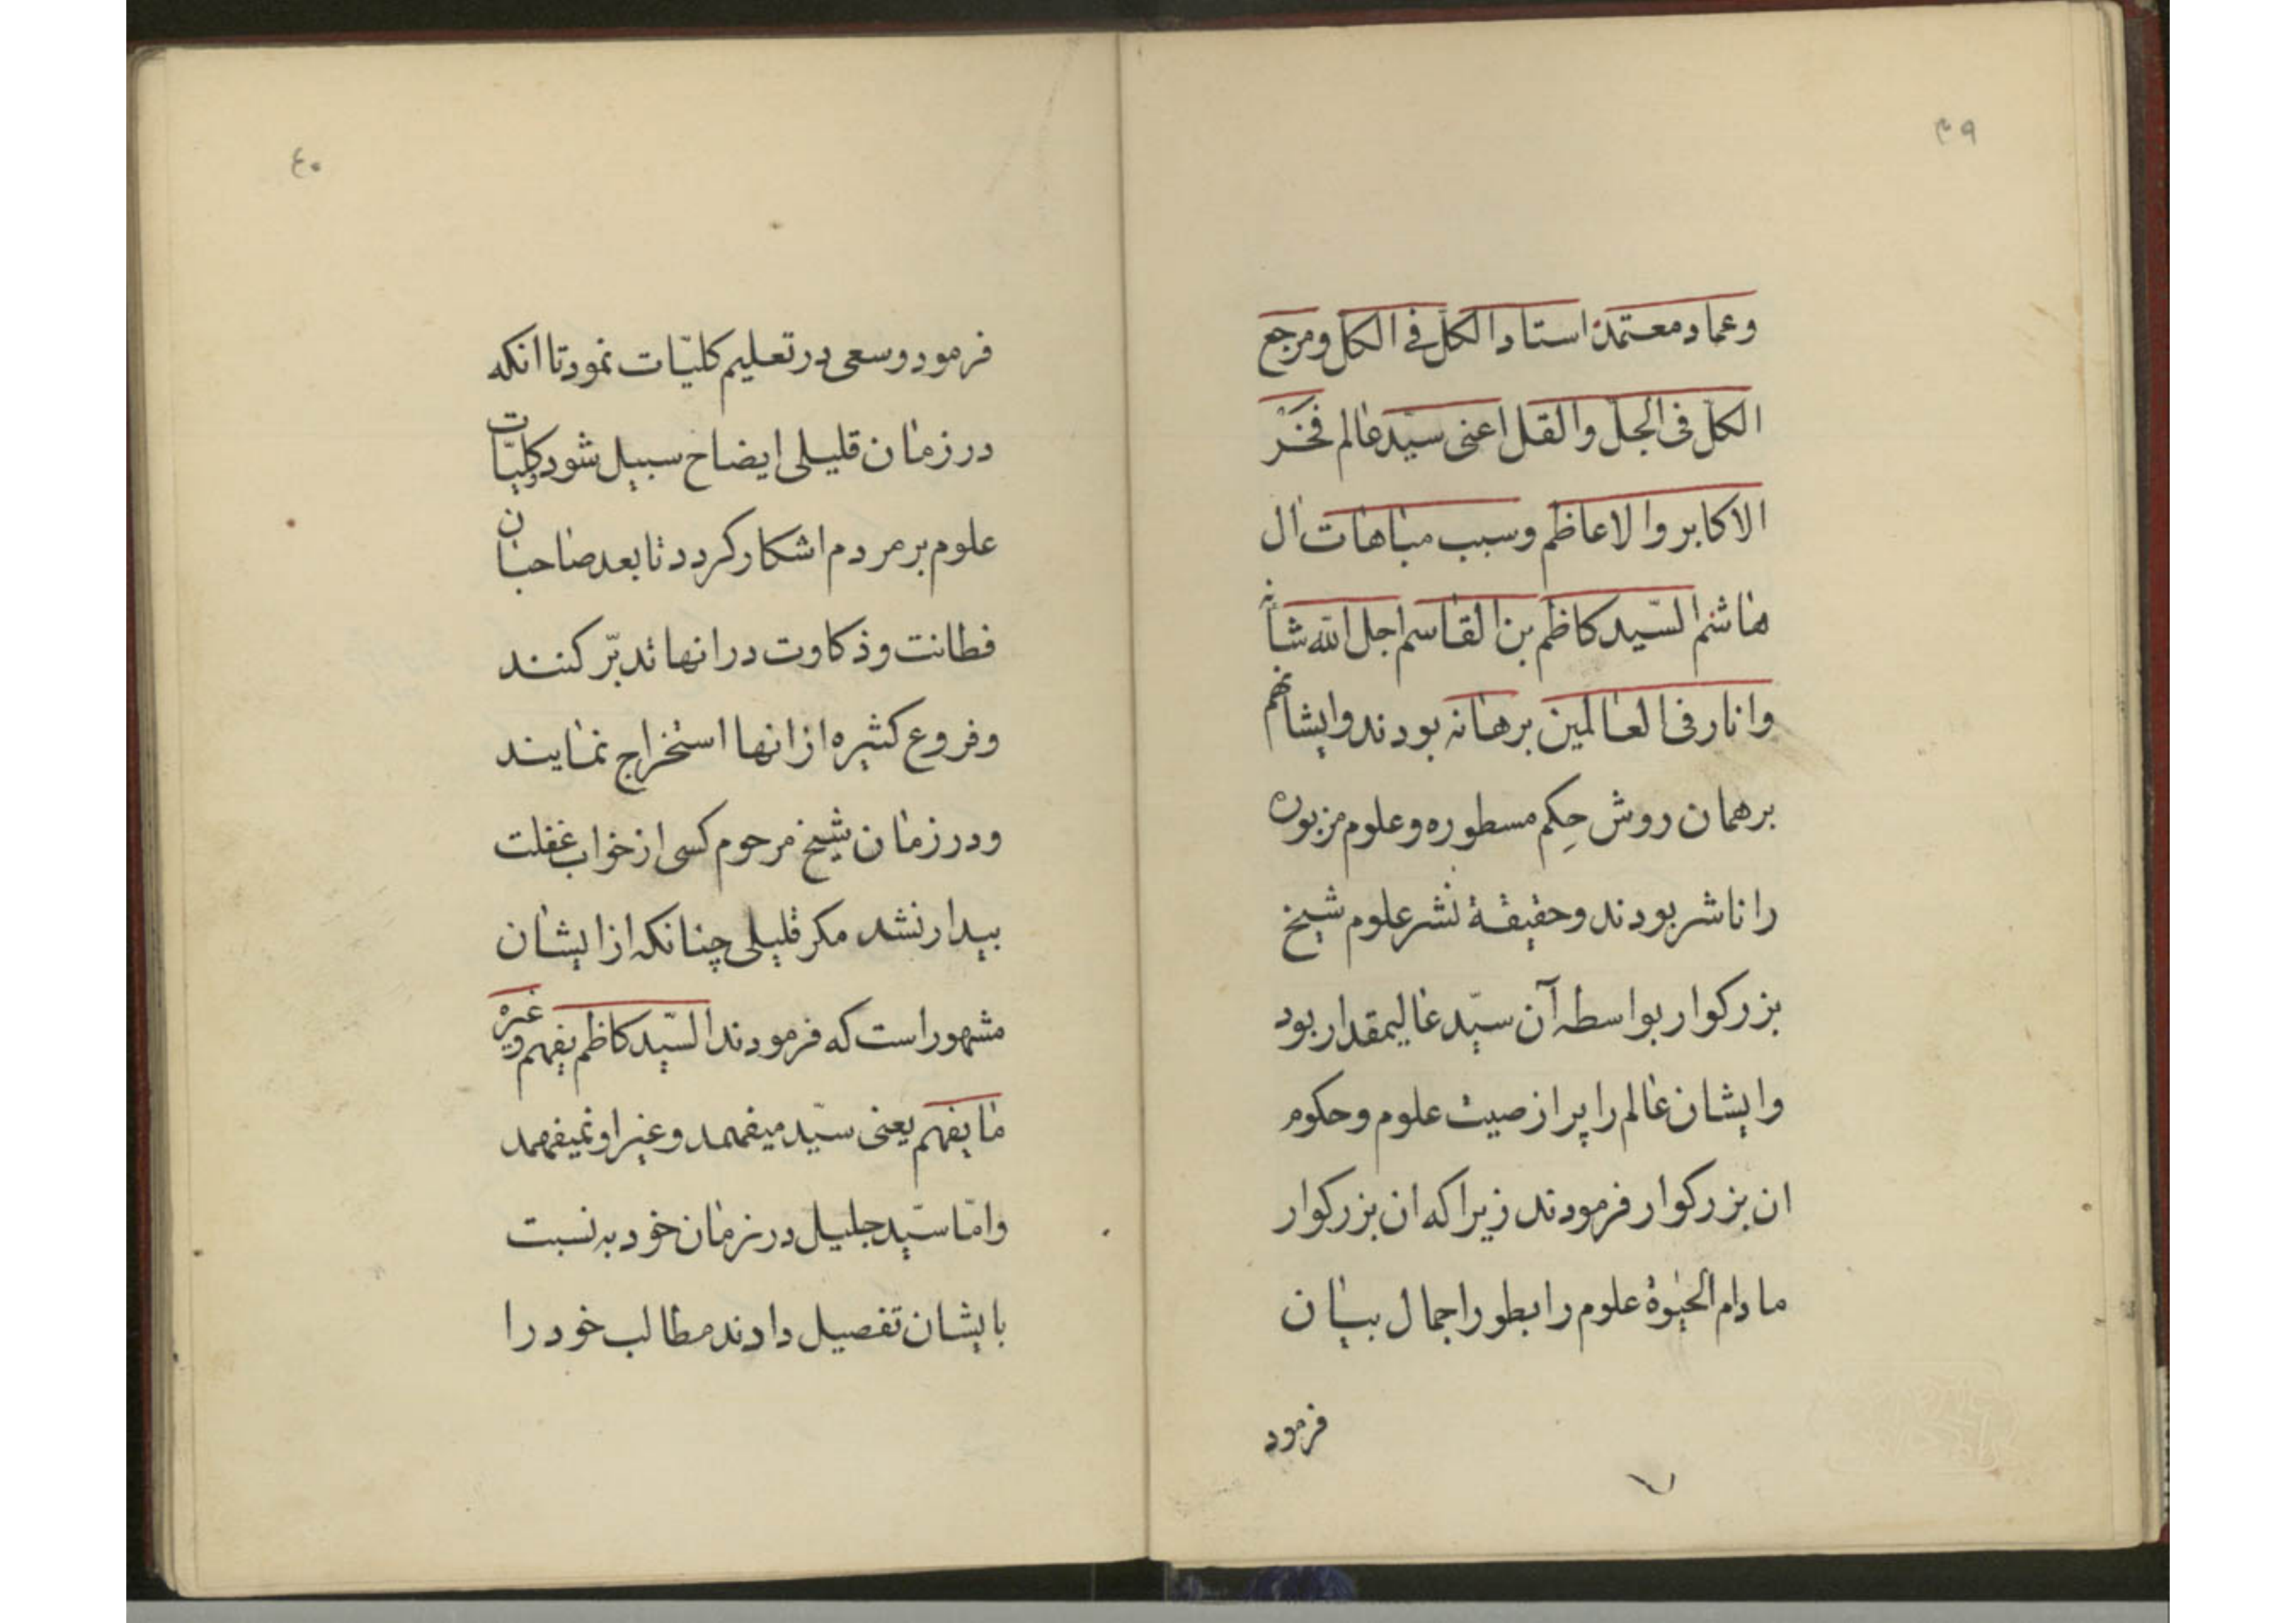 ۳۹
وعماد معتمد استاد الکل فی الکل ومرجع
الکل فی الجل والقل اعنی سیّد عالم فَخْر
الاکابر والاعاظم وسبب مباهات ال
هاشم السّید کاظم بن القاسم اجل الله شأنه
وانار فی العالمین برهانه بودند وایشانهم
برهمان روش حِکم مسطوره وعلوم مزبوره
را ناشر بودند وحقیقة نشر علوم شیخ
بزرکوار بواسطه آن سیّد عالیمقدار بود
وایشان عالم را پر از صیت علوم وحکوم
ان بزرکوار فرمودند زیرا که ان بزرکوار
مادام الحیوة علوم را بطور اجمال بیان
فرمود
۴۰
فرمود وسعی در تعلیم کلیّات نمود تا انکه
در زمان قلیلی ایضاح سبیل شود وکلیّات
علوم بر مردم اشکار کردد تا بعد صاحبان
فطانت وذکاوت در انها تدبّر کنند
وفروع کثیره از انها استخراج نمایند
ودر زمان شیخ مرحوم کسی از خواب غفلت
بیدار نشد مکر قلیلی چنانکه از ایشان
مشهور است که فرمودند السّید کاظم یفهم وغیره
ما یفهم یعنی سیّد میفهمد وغیر او نمیفهمد
وامّا سیّد جلیل در زمان خود به نسبت
بایشان تفصیل دادند مطالب خود را